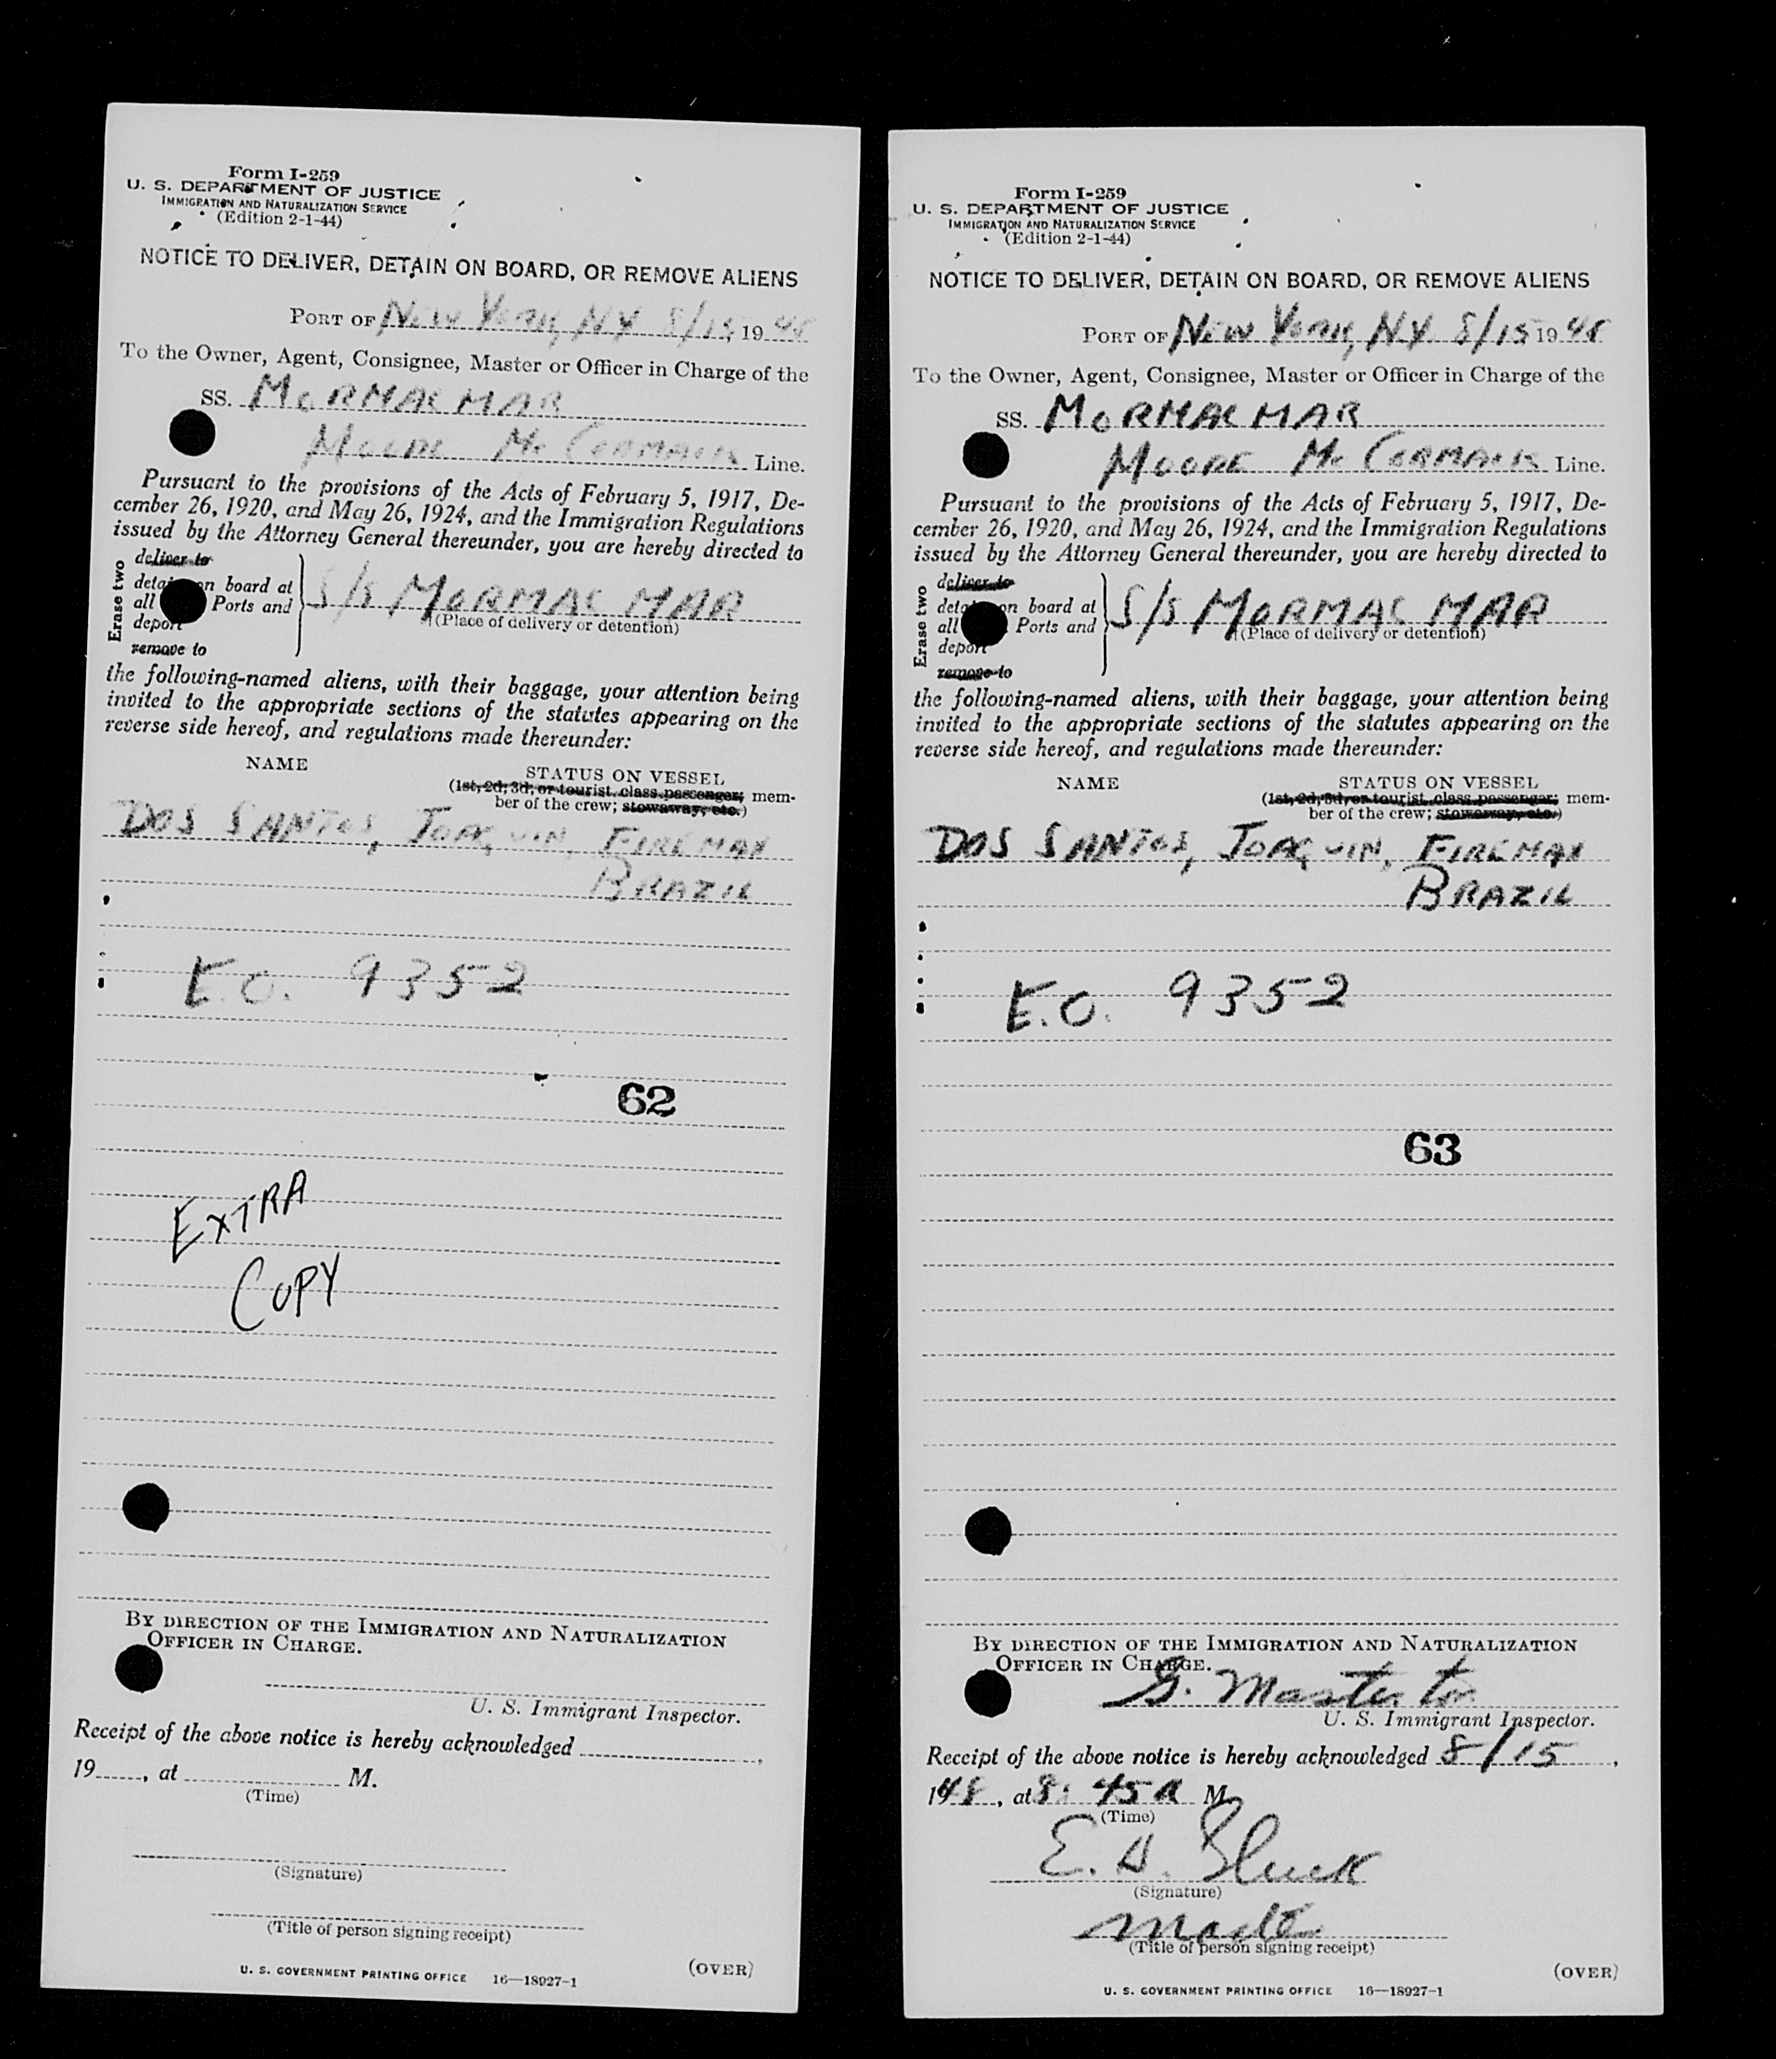 Form I-259
U. S. DEPARTMENT OF JUSTICE
IMMIGRATION AND NATURALIZATION SERVICE
(Edition 2-1-44)
NOTICE TO DELIVER, DETAIN ON BOARD, OR REMOVE ALIENS
PORT OF NEW YORK, NY 8/15, 19 48
To the Owner, Agent, Consignee, Master or Officer in Charge of the
SS. MORMACMAR
MOORE McCORMACK Line.
Pursuant to the provisions of the Acts of February 5, 1917, De-
cember 26, 1920, and May 26, 1924, and the Immigration Regulations
issued by the Attorney General thereunder, you are hereby directed to
Erase two
deliver to
detain on board at
all Ports and
deport
remove to
S/S MORMAC MAR
(Place of delivery or detention)
the following-named aliens, with their baggage, your attention being
invited to the appropriate sections of the statutes appearing on the
reverse side hereof, and regulations made thereunder:
NAME STATUS ON VESSEL
(1st, 2d, 3d, or tourist class passenger; mem-
ber of the crew; stowaway, etc.)
DOS SANTOS, JOAQUIN, FIREMAN
BRAZIL
E.O. 9352
62
EXTRA
COPY
BY DIRECTION OF THE IMMIGRATION AND NATURALIZATION
OFFICER IN CHARGE.
U. S. Immigrant Inspector.
Receipt of the above notice is hereby acknowledged ,
19 , at M.
(Time)
(Signature)
(Title of person signing receipt)
U. S. GOVERNMENT PRINTING OFFICE 16—18927-1
(OVER)
Form I-259
U. S. DEPARTMENT OF JUSTICE
IMMIGRATION AND NATURALIZATION SERVICE
(Edition 2-1-44)
NOTICE TO DELIVER, DETAIN ON BOARD, OR REMOVE ALIENS
PORT OF NEW YORK, NY. 8/15 19 48
To the Owner, Agent, Consignee, Master or Officer in Charge of the
SS. MORMACMAR
MOORE McCORMACK Line.
Pursuant to the provisions of the Acts of February 5, 1917, De-
cember 26, 1920, and May 26, 1924, and the Immigration Regulations
issued by the Attorney General thereunder, you are hereby directed to
Erase two
deliver to
detain on board at
all Ports and
deport
remove to
S/S MORMAC MAR
(Place of delivery or detention)
the following-named aliens, with their baggage, your attention being
invited to the appropriate sections of the statutes appearing on the
reverse side hereof, and regulations made thereunder:
NAME STATUS ON VESSEL
(1st, 2d, 3d, or tourist class passenger; mem-
ber of the crew; stowaway, etc.)
DOS SANTOS, JOAQUIN, FIREMAN
BRAZIL
E.O. 9352
63
BY DIRECTION OF THE IMMIGRATION AND NATURALIZATION
OFFICER IN CHARGE.
G. Masterton
U. S. Immigrant Inspector.
Receipt of the above notice is hereby acknowledged 8/15 ,
1948, at 8:45 A M.
(Time)
E.
(Signature)
Master
(Title of person signing receipt)
U. S. GOVERNMENT PRINTING OFFICE 16—18927-1
(OVER)